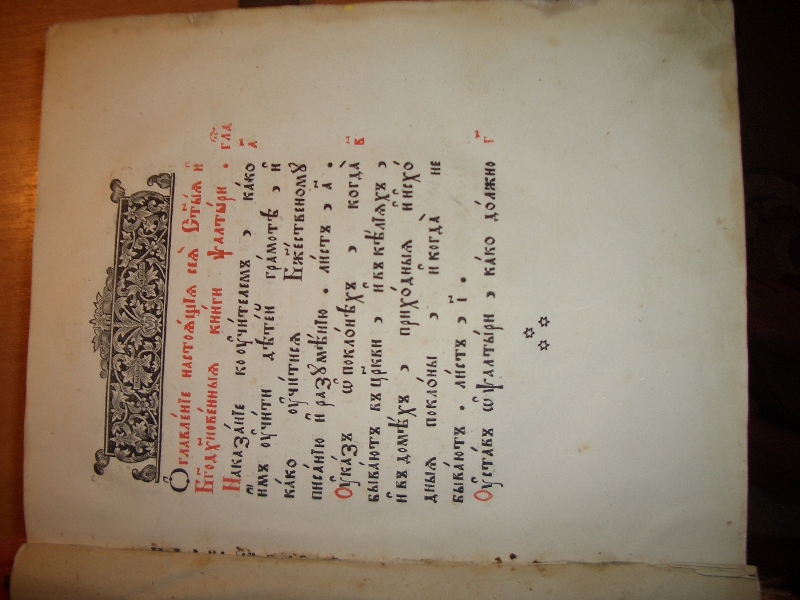 Ѻглавле́нїе настоѧ́щїѧ сеѧ̀ Ст҃ы́ѧ и҆
Бг҃одꙋхнове́нныѧ кни́ги ѱалты́ри . гла
Наказа́нїе ко ᲂу҆чи́телемъ , ка́ко а҃
и҆мъ ᲂу҆чи́ти дѣте́й гра́мотѣ , и҆
ка́ко ᲂу҆чи́тисѧ Бж҃е́ственомꙋ
писа́нїю и҆ разꙋмѣ́нїю . ли́стъ , а҃ .
Оу҆ка́зъ ѡ҆ покло́нѣхъ , когда̀ в҃
быва́ютъ въ цр҃кви , и҆ въ ке́лїѧхъ ,
и҆ въ домѣ́хъ , прихо́дныѧ и҆ и҆схо́
дныѧ покло́ны , и҆ когда̀ не
быва́ютъ . ли́стъ , і҃ .
Оу҆ста́въ ѡ҆ ѱалты́ри , ка́ко до́лжно г҃